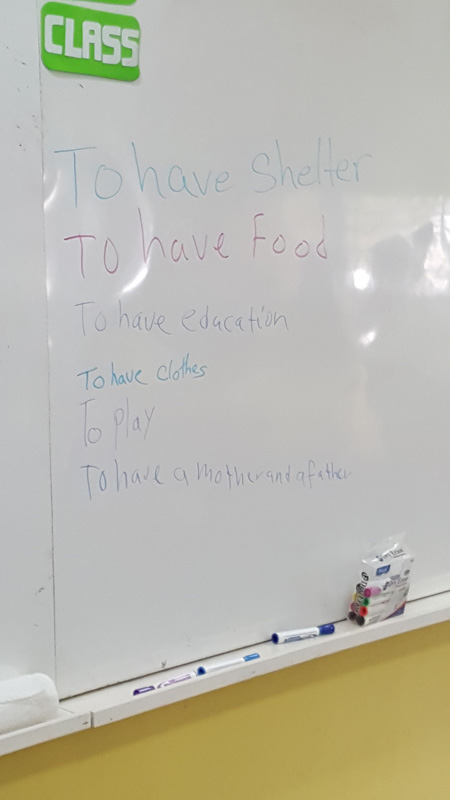 CLASS
To have Shelter
To have Food
To have education
To have clothes
To play
To have a mother and a father